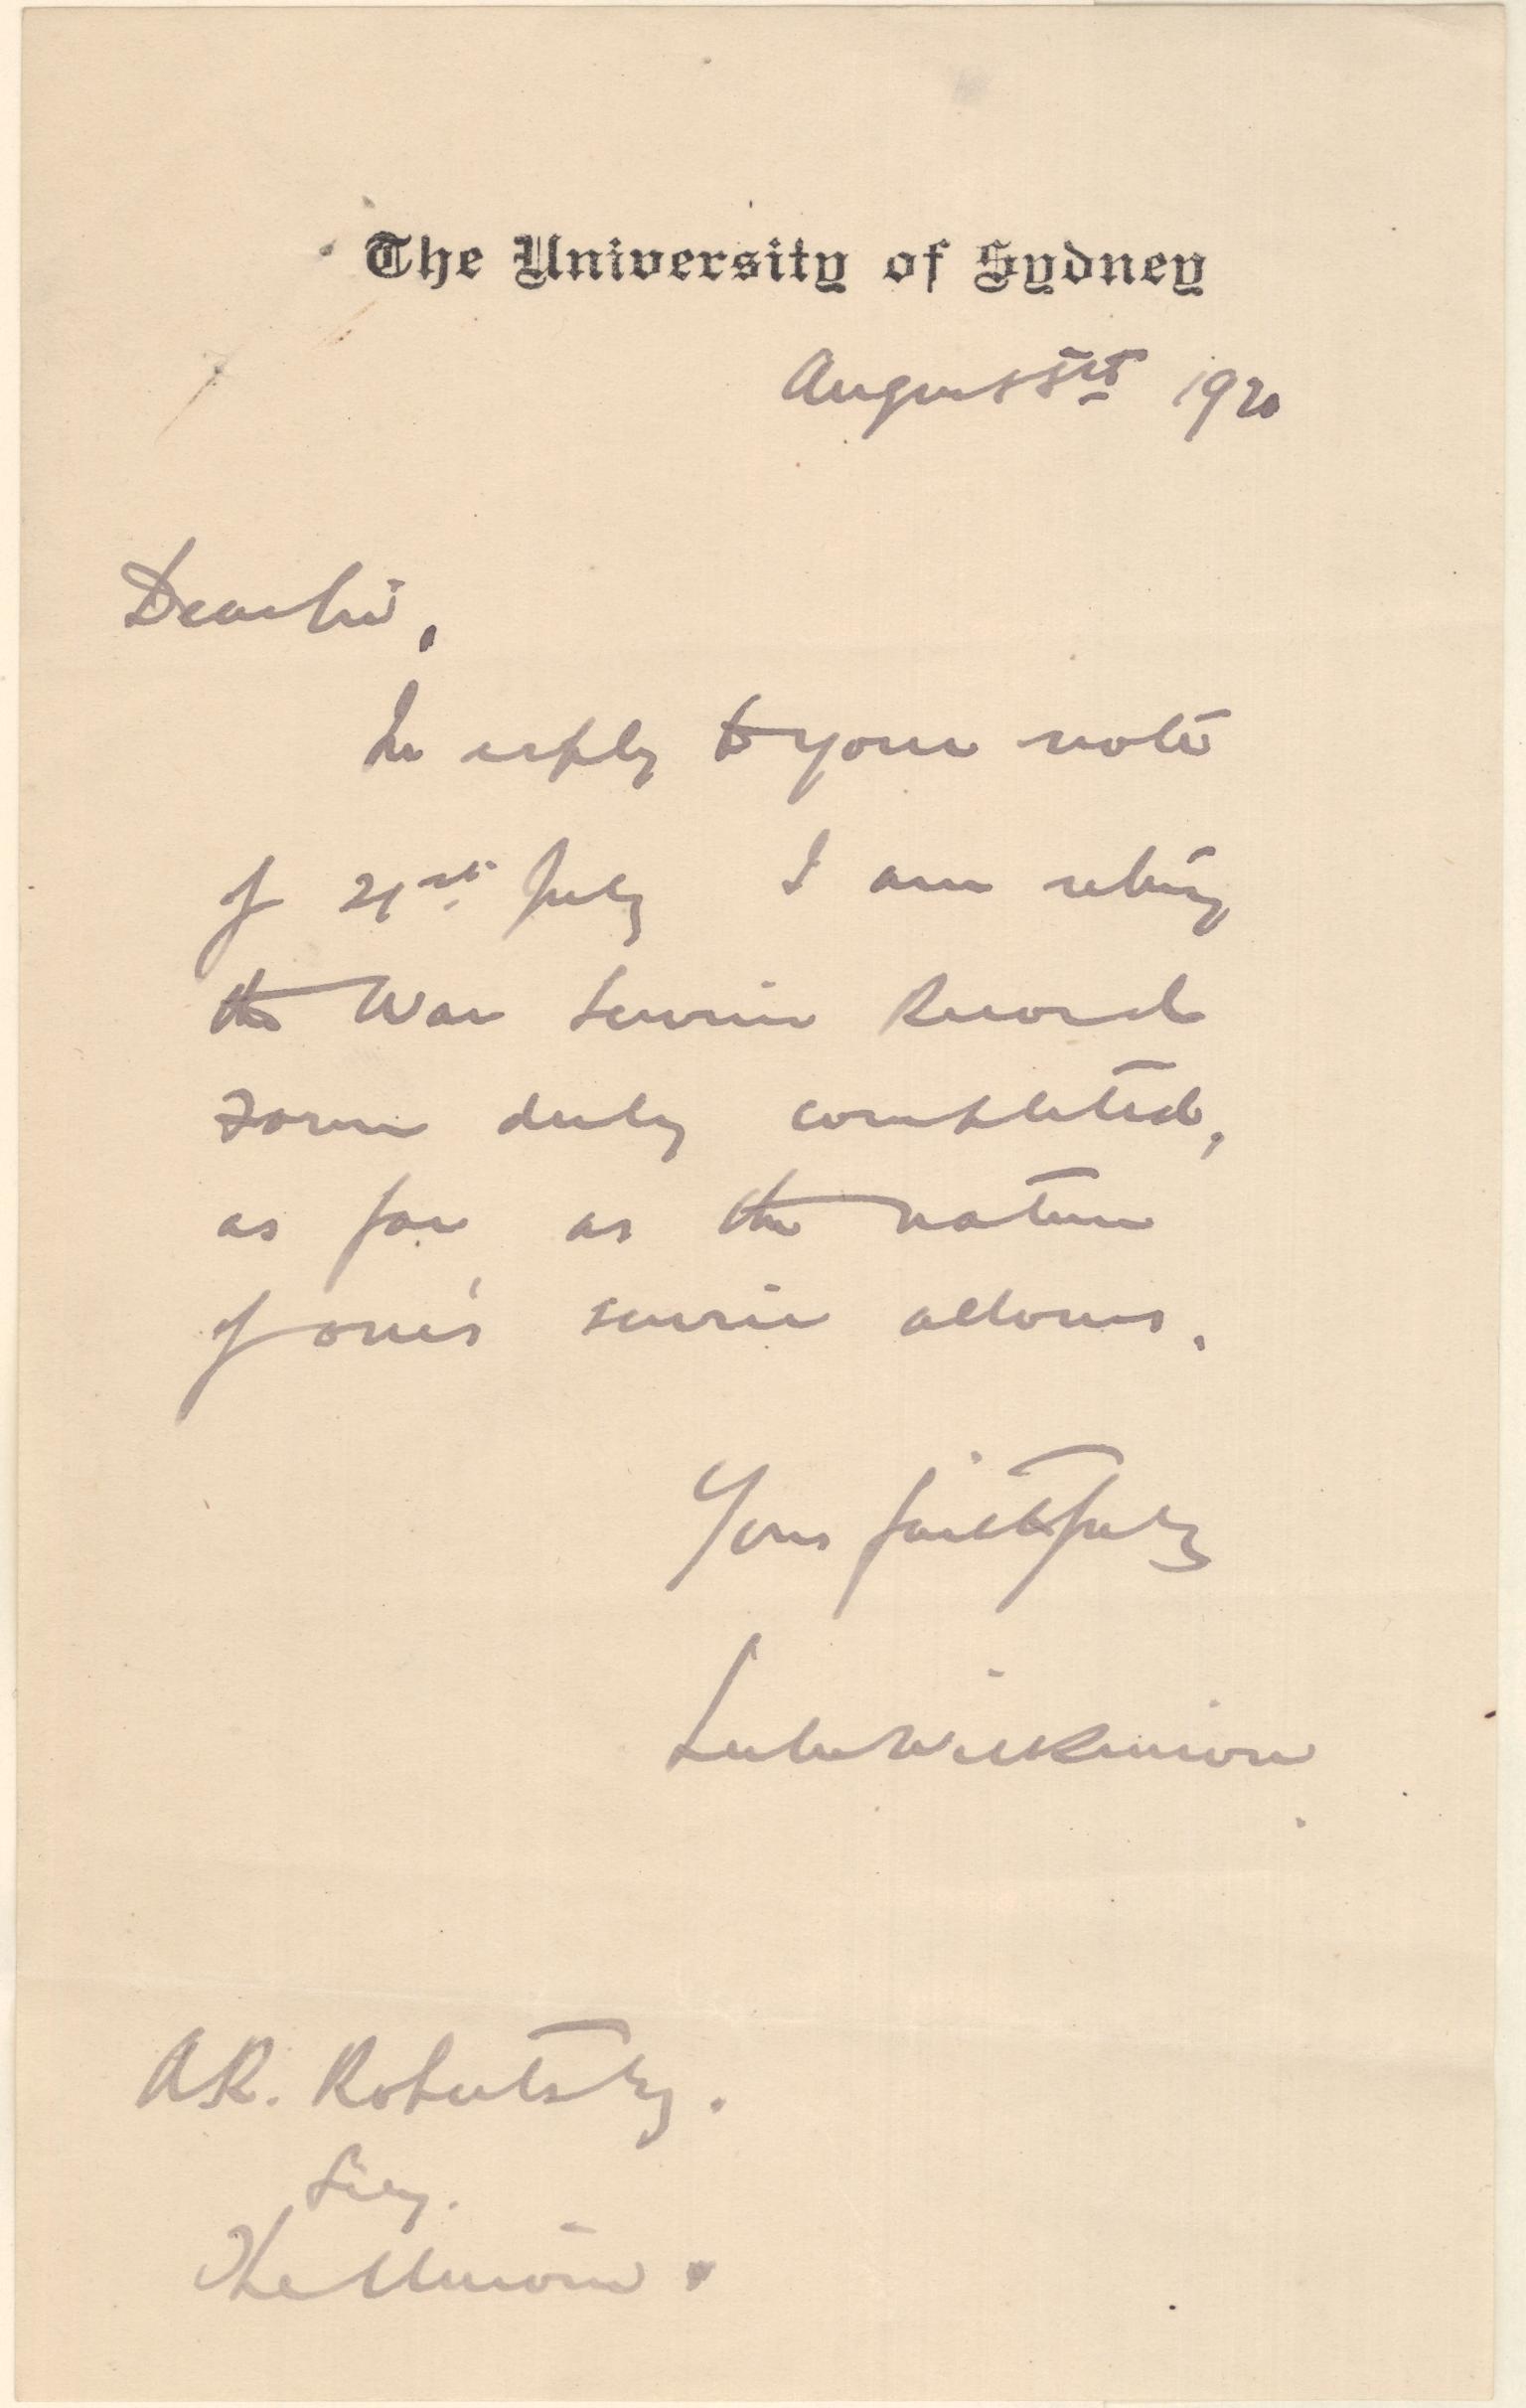 The University of Sydney
August 5th 1920
Dear Sir,
In reply to your note
of 21st July I am retng
the War Service Record
Form duly completed,
as far as the nature
of one's service allows.
Yours faithfully
Leslie Wilkinson
A.R. Roberts Esq.
Secy.
The Union.